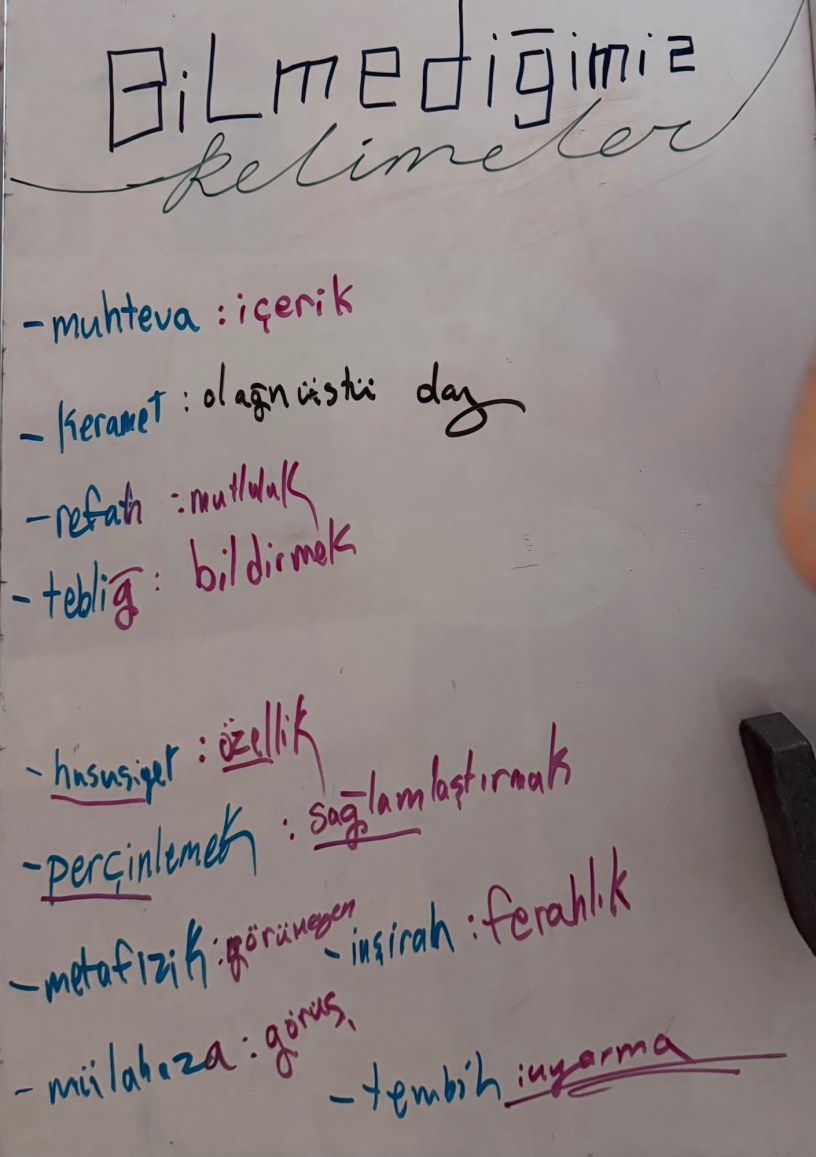 BiLmediğimiz
kelimeler
-muhteva : içerik
-keramet : olağnüstü
-refah : mutluluk
-tebliğ : bildirmek
-hususiyet : özellik
-perçinlemek : sağlamlaştırmak
-metafizik : görünmeyen
-inşirah : ferahlık
-mülahaza : görüş
-tembih : uyarma